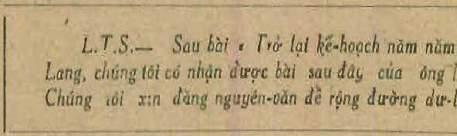 L.T.S.— Sau bài « Trở lại kế-hoạch năm năm
Lang, chúng tôi có nhận được bài sau đây của ông
Chúng tôi xin đăng nguyên-văn để rộng đường dư-l